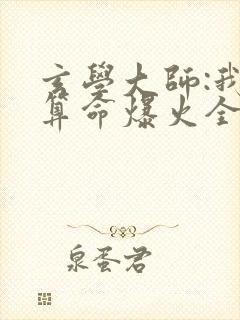 玄學大師:我
算命爆火全
泉蛋君